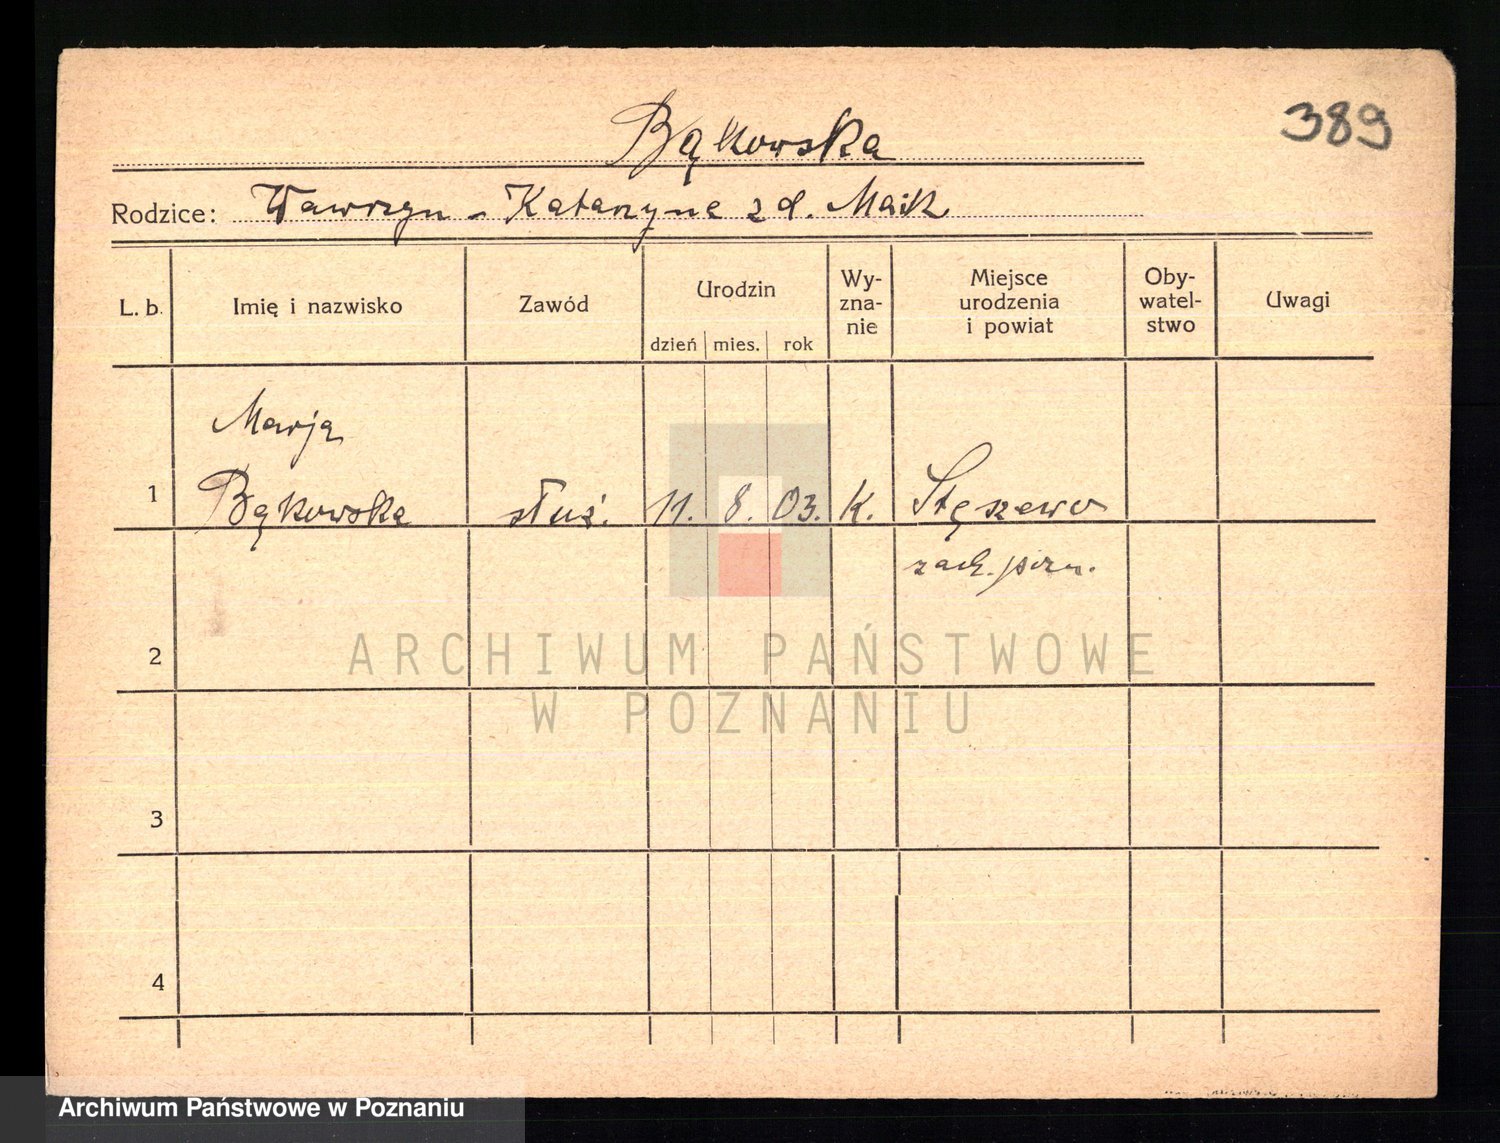 389
Bąkowska
Rodzice: Wawrzyn - Katarzyna z d. Maik
L. b.
Imię i nazwisko
Zawód
Urodzin
dzień mies. rok
Wy-
zna-
nie
Miejsce
urodzenia
i powiat
Oby-
watel-
stwo
Uwagi
Marja
1 Bąkowska służ. 11. 8. 03. K. Stęszewo
2
3
4
ARCHIWUM PAŃSTWOWE
W POZNANIU
Archiwum Państwowe w Poznaniu